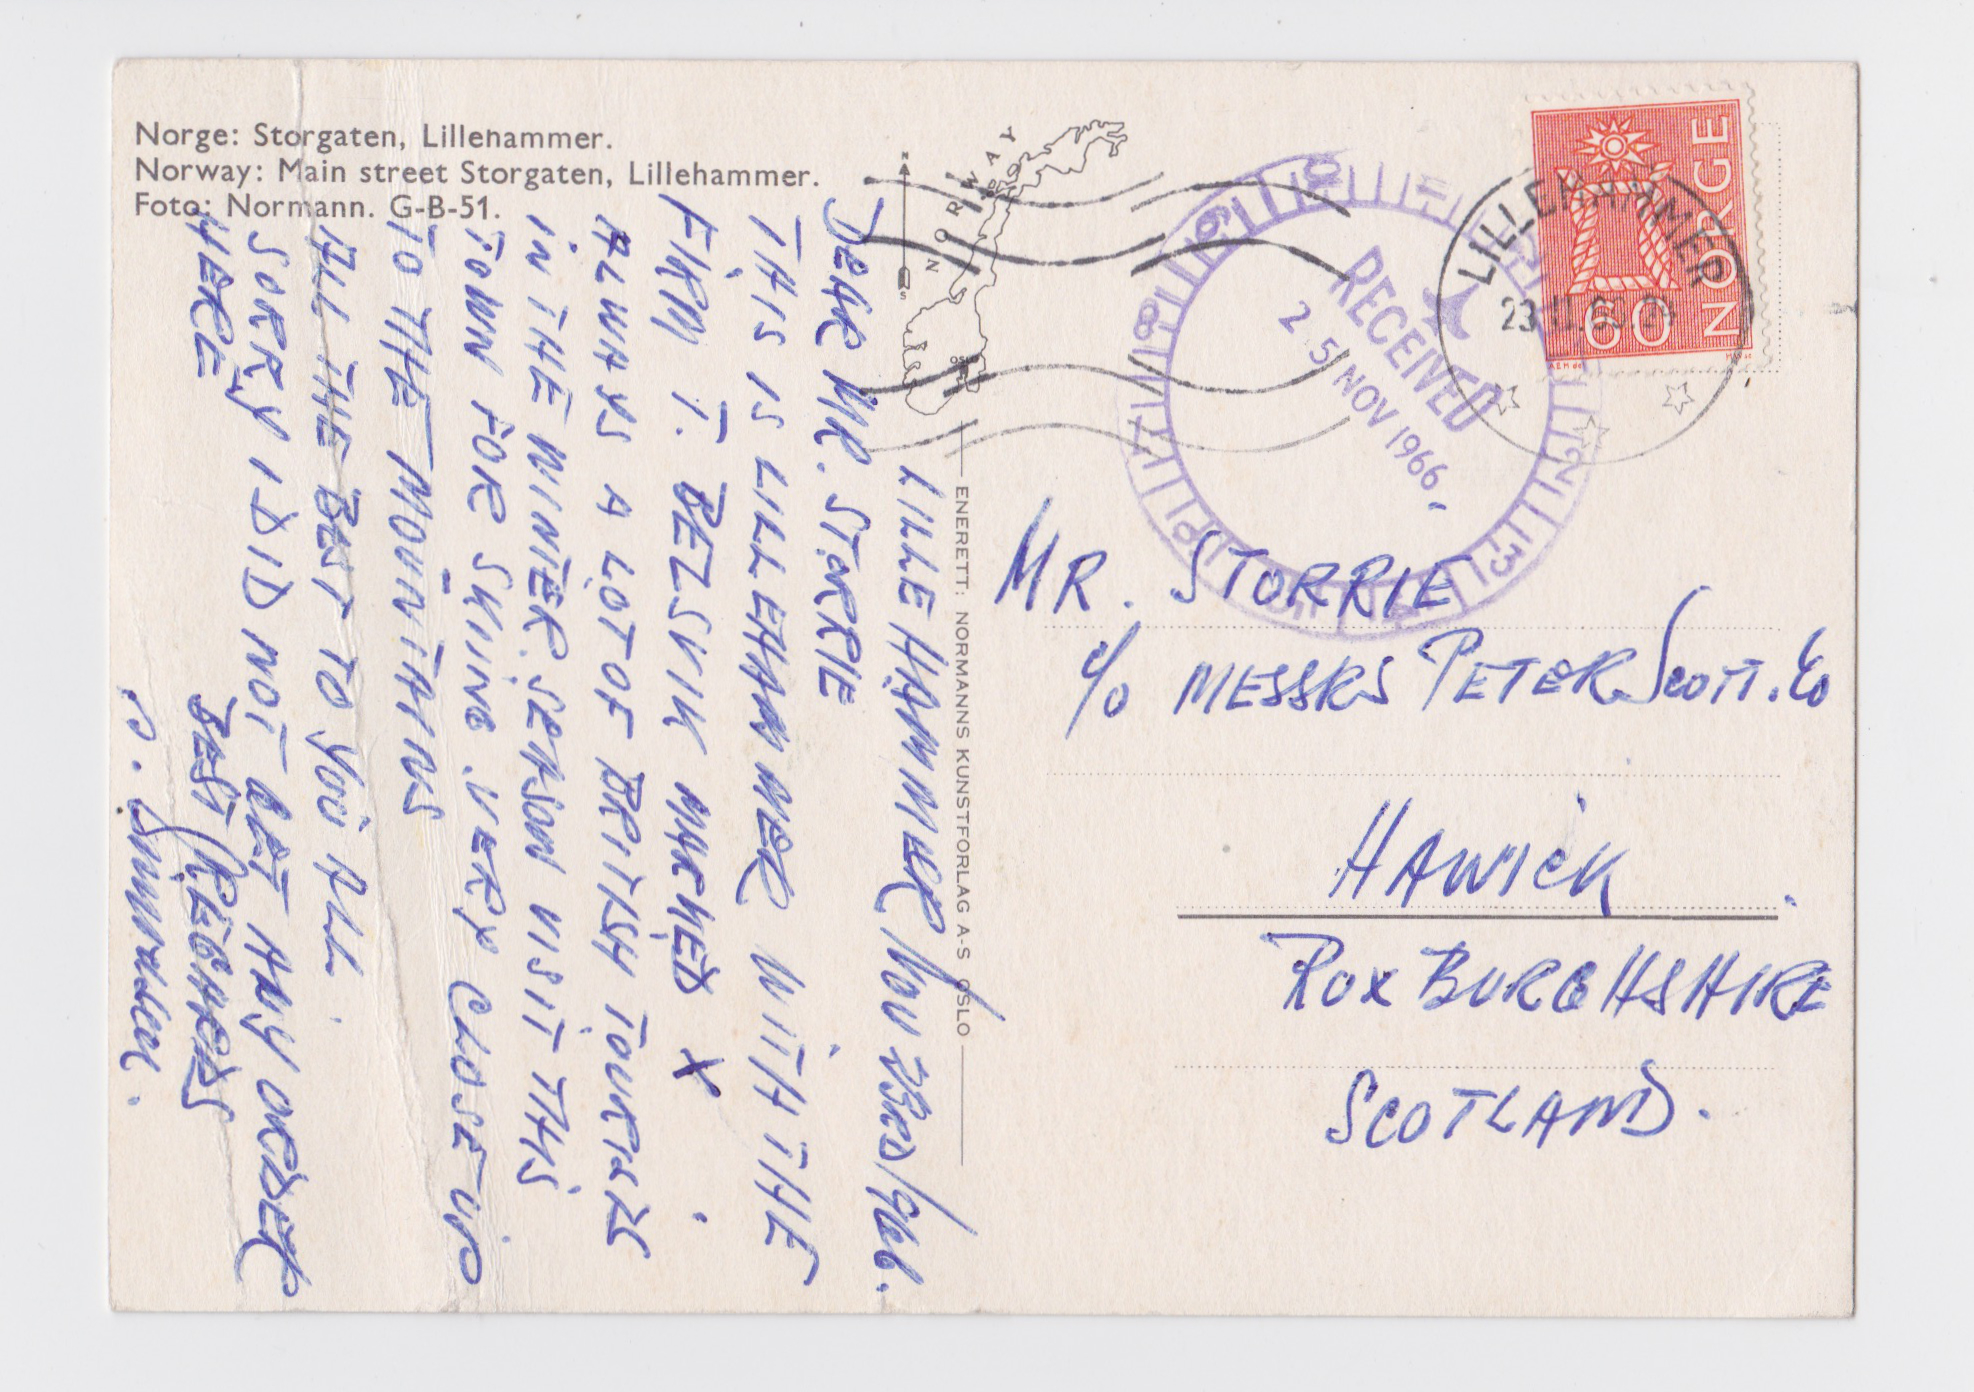 Norge: Storgaten, Lillehammer.
Norway: Main street Storgaten, Lillehammer.
Foto: Normann. G-B-51.
NORWAY
N
S
OSLO
ENERETT: NORMANNS KUNSTFORLAG A-S OSLO
LILLEHAMMER
23.11.66
NORGE
60
RECEIVED
25 NOV 1966
LILLEHAMMER NOV 23RD/1966.
DEAR MR. STORRIE
THIS IS LILLEHAMMER WITH THE
FIRM T. BEZSVIK MARKED X.
ALWAYS A LOT OF BRITISH TOURIZS
IN THE WINTER SEASON VISIT THIS
TOWN FOR SKIING. VERY CLOSE-UP
TO THE MOUNTAINS
ALL THE BEST TO YOU ALL.
SORRY I DID NOT GET ANY ORDER
HERE
BEST REGARDS
MR. STORRIE
c/o MESSRS PETER SCOTT. Co
HAWICK.
ROXBURGHSHIRE
SCOTLAND.